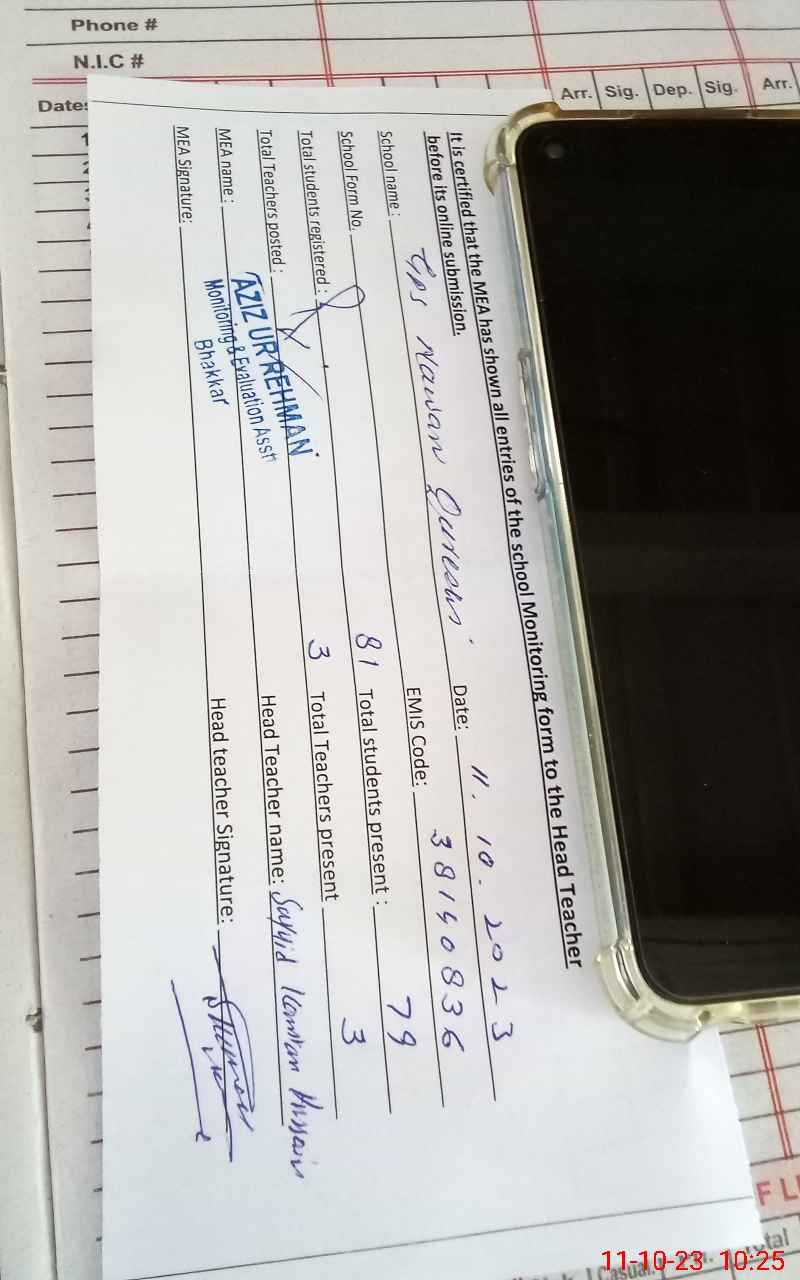 Phone #
N.I.C #
Date:
Arr. Sig. Dep. Sig. Arr.
It is certified that the MEA has shown all entries of the school Monitoring form to the Head Teacher
before its online submission.
Date: 11.10.2023
School name: GPS Nawan Qureshi
EMIS Code: 38140836
School Form No.
Total students registered: 81 Total students present: 79
Total Teachers posted: 3 Total Teachers present 3
MEA name: AZIZ UR REHMAN
Monitoring & Evaluation Asstt
Bhakkar
Head Teacher name: Sayyid Kamran Hussain
MEA Signature:
Head teacher Signature:
F L
Casual
Total
11-10-23 10:25